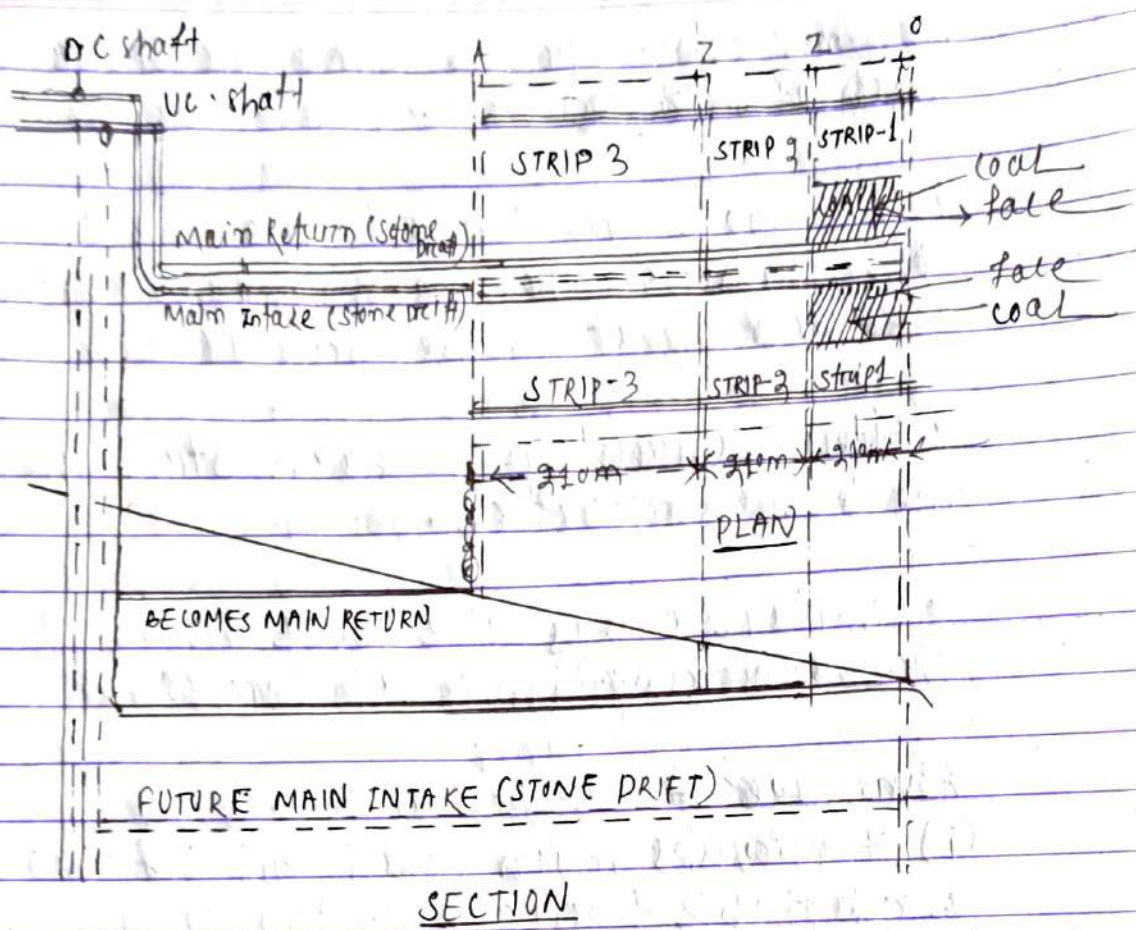 DC shaft
UC. shaft
A
Z
Z
O
STRIP 3
STRIP 2
STRIP-1
coal
face
Main Return (stone
Main Intake (stone Drift)
face
coal
STRIP-3
STRIP-2
Strip1
210m
210m
210m
PLAN
BECOMES MAIN RETURN
FUTURE MAIN INTAKE (STONE DRIFT)
SECTION